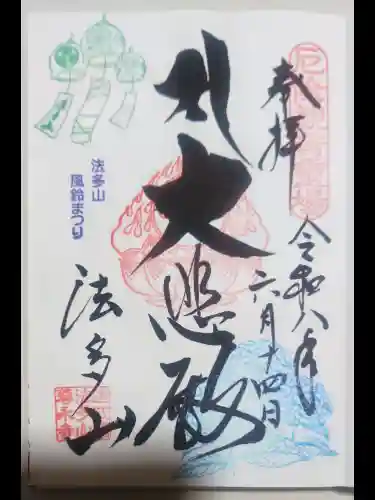 奉拝
令和八年
六月十四日
大悲殿
法多山
風鈴まつり
法多山